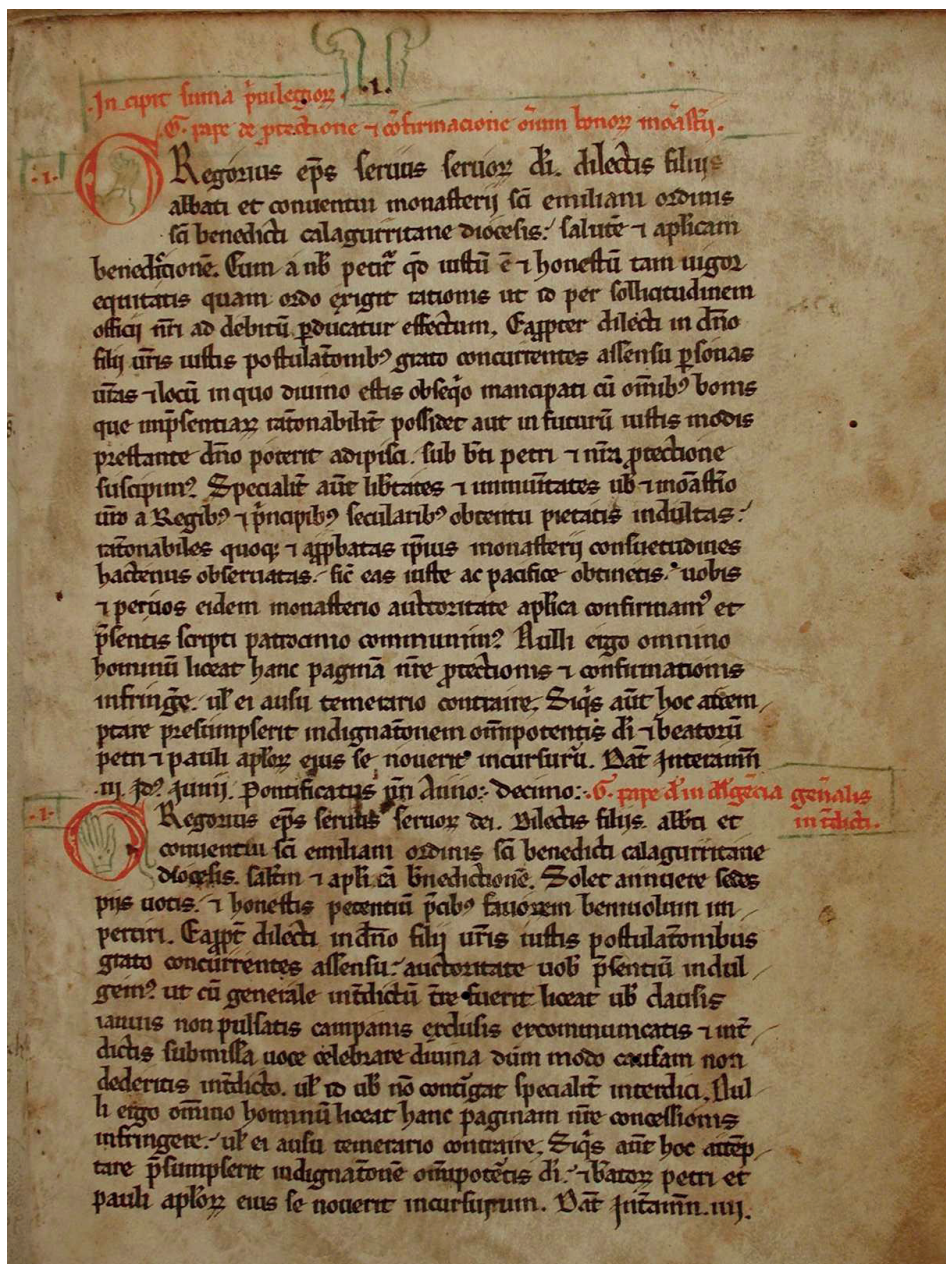 .In cipit suma p̃uilegioꝝ .I.
.G. pape de ꝓtectione ⁊ cõfirmacione oĩum bonoꝝ moãstꝭii.
.1. GRegorius ep̃s seruus seruoꝝ dĩ. dilectis filiis
abbati et conuentui monasterij sc̃i emiliani ordinis
sc̃i benedicti calagurritane diocesis: salutẽ ⁊ ap̃licam
benedictionẽ. Cum a nob̃ petit̃ qd̃ iustũ ẽ ⁊ honestũ tam uigor
equitatis quam ordo exigit rationis ut id per sollicitudinem
officii nr̃i ad debitũ ꝑducatur effectum. Eaꝓpter dilecti in dño
filij ur̃is iustis postulat̃onibꝰ grato concurrentes assensu ꝑsonas
ur̃as ⁊ locũ in quo diuino estis obseq̃o mancipati cũ om̃ibꝰ bonis
que imp̃sentiaꝝ rat̃onabilit̃ possidet aut in futurũ iustis modis
prestante dño poterit adipisci. sub b̃ti petri ⁊ nr̃a ꝓtectione
suscipimꝰ Specialit̃ aũt lib̃tates ⁊ immuñtates ub̃ ⁊ moãst̃io
ur̃o a Regibꝰ ⁊ p̃ncipibꝰ secularibꝰ obtentu pietatis indultas:
rat̃onabiles quoqꝫ ⁊ aꝓbatas ip̃ius monasterij consuetudines
hactenus obseruatas. sic̃ eas iuste ac pacifice obtinetis. uobis
⁊ per uos eidem monasterio auctoritate ap̃lica confirmamꝰ et
p̃sentis scripti patrocinio communimꝰ Nulli ergo omnino
hominũ liceat hanc paginã nr̃e ꝓtectionis ⁊ confirmationis
infring̃e. ul̃ ei ausu temerario contraire. Siq̃s aũt hoc attem
ptare presumpserit indignat̃onem om̃ipotentis dĩ ⁊ beatorũ
petri ⁊ pauli ap̃loꝝ ejus se nouerit incursurũ. Dat̃ Interamñ
.iii. Idꝰ Junij. Pontificatus ñri Anno: decimo: .G. pape dĩ in dulgẽcia geñalis
in t̃dicti.
.1. GRegorius ep̃s seruus seruoꝝ dei. Dilectis filijs. abb̃ti et
conuentui sc̃i emiliani ordinis sc̃i benedicti calagurritane
diocesis. salt̃m ⁊ ap̃li cã b̃nedictionẽ. Solet annuere sedes
pijs uotis. ⁊ honestis petentiũ p̃cibꝰ fauorem beniuolum im
pertiri. Eaꝓpt̃ dilecti in dño filij ur̃is iustis postulat̃onibus
grato concurrentes assensu: auctoritate uob̃ p̃sentiũ indul
gemꝰ ut cũ generale int̃dictũ t̃re fuerit liceat ub̃ clausis
ianuis non pulsatis campanis exclusis excommunicatis ⁊ int̃
dictis submissa uoce celebrare diuina dũm modo causam non
dederitis int̃dicto. ul̃ id ub̃ nõ contĩgat specialit̃ interdici. Nul
li ergo om̃ino hominũ liceat hanc paginam nr̃e concessionis
infringere. ul̃ ei ausu temerario contraire. Siq̃s aũt hoc attẽp
tare p̃sumpserit indignat̃onẽ om̃ipotẽtis dĩ. ⁊ b̃atoꝝ petri et
pauli ap̃loꝝ eius se nouerit incursurum. Dat̃ Int̃amñ. iiij.